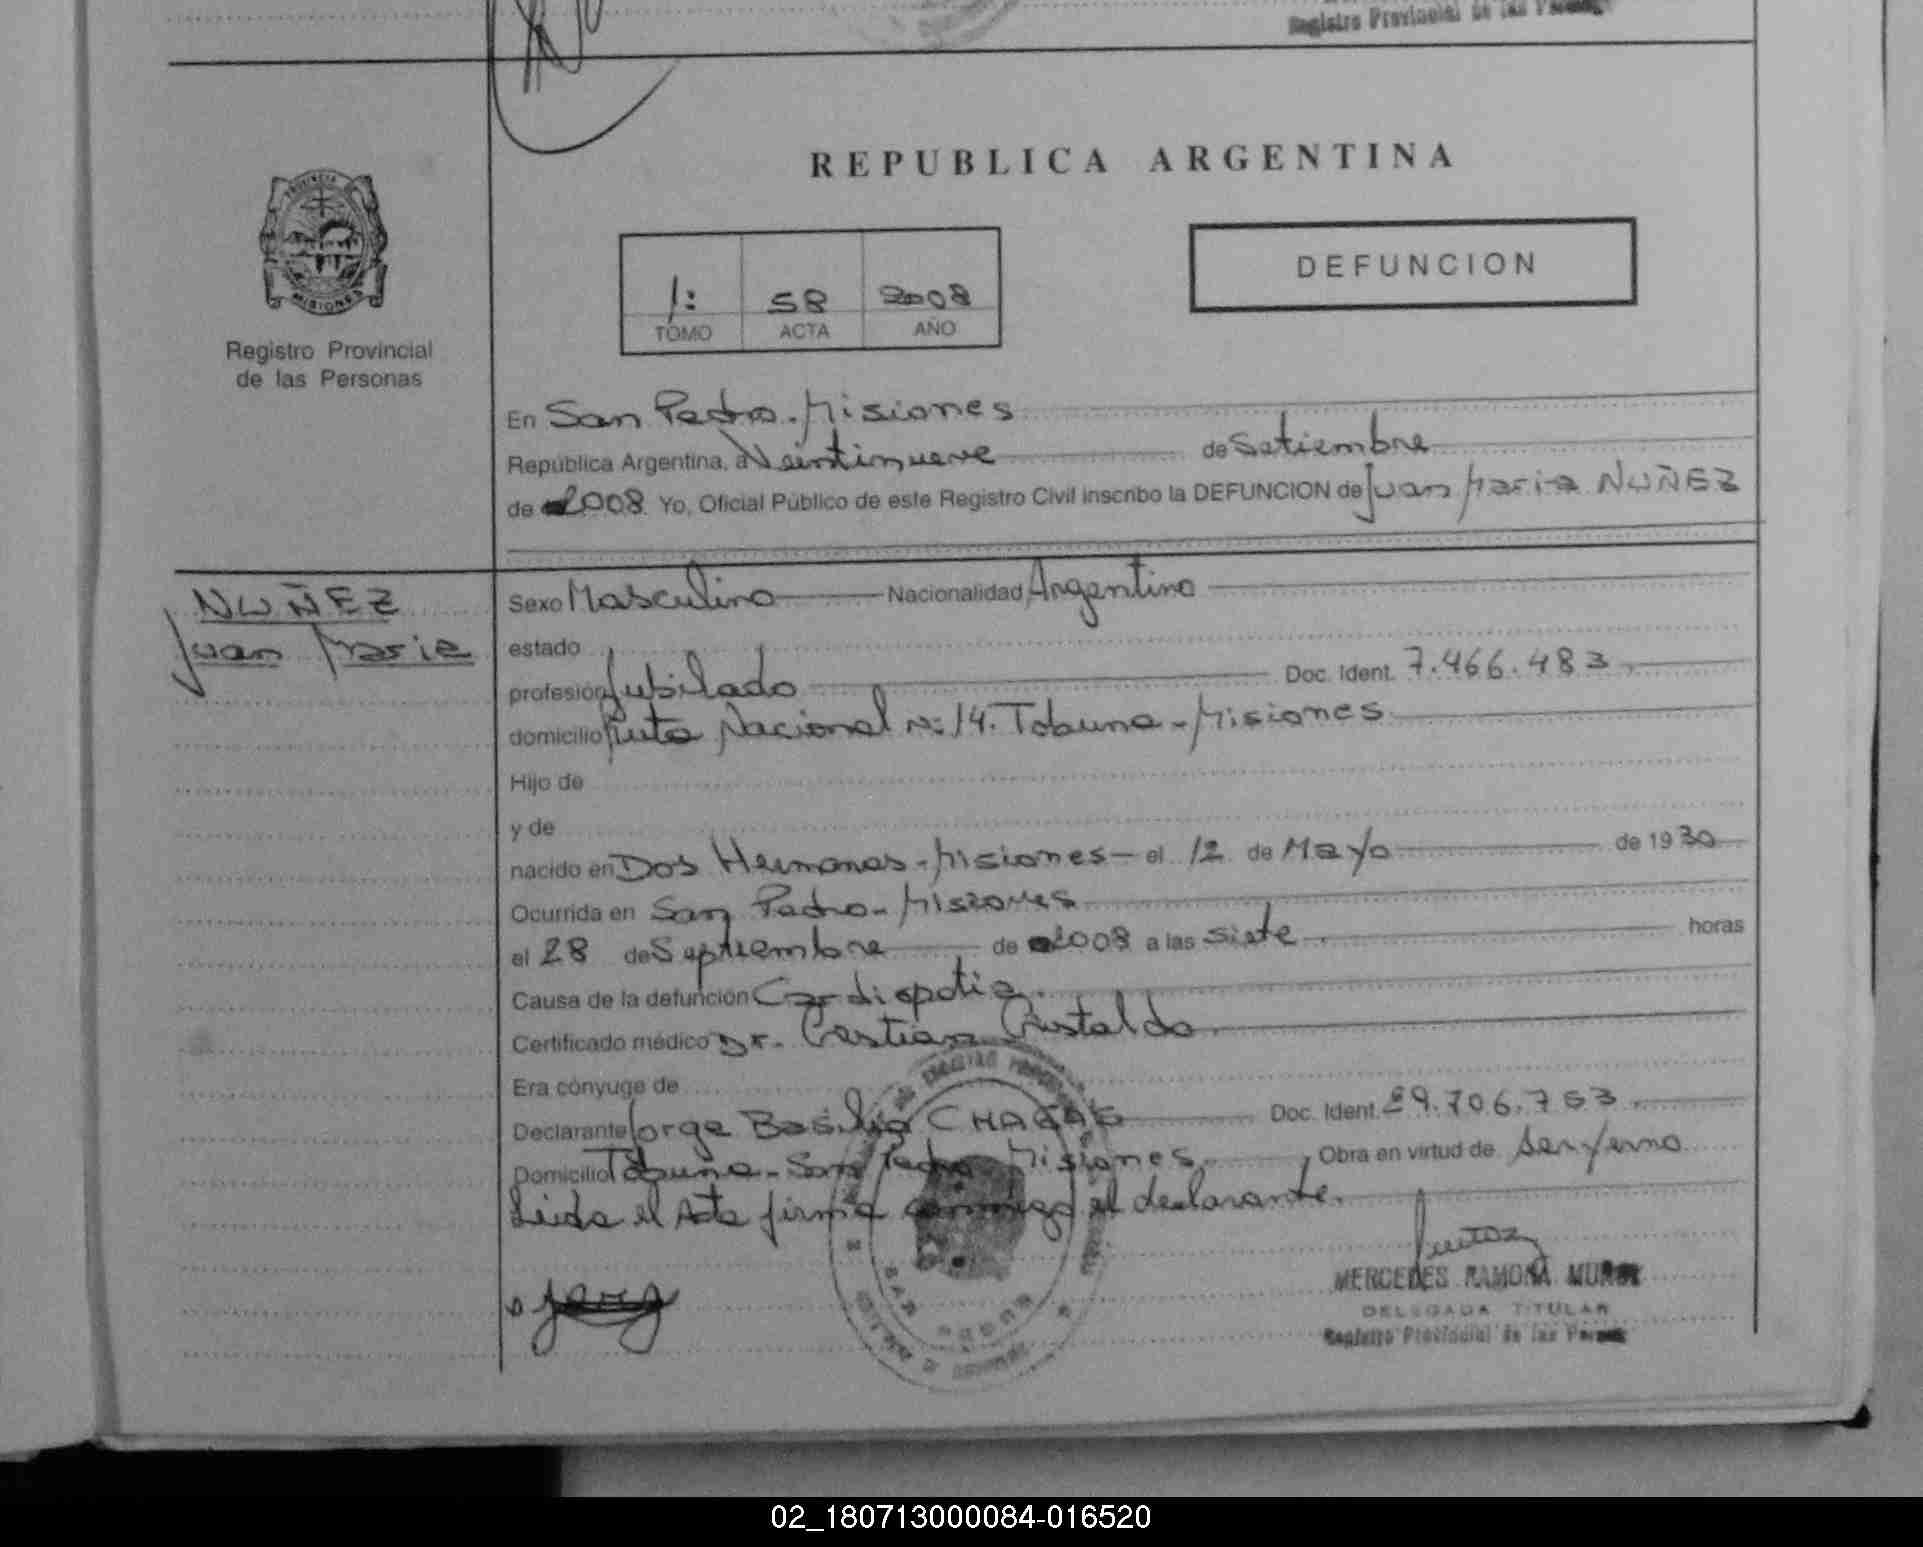 Registro Provincial de las
REPUBLICA ARGENTINA
PROVINCIA
MISIONES
DEFUNCION
1: 58 2008
TOMO ACTA AÑO
Registro Provincial
de las Personas
En San Pedro - Misiones
República Argentina, a Veintinueve de Setiembre
de 2008. Yo, Oficial Público de este Registro Civil inscribo la DEFUNCION de Juan Maria NUÑEZ
NUÑEZ
Juan Maria
Sexo Masculino Nacionalidad Argentino
estado
profesión Jubilado Doc. Ident. 7.466.483.
domicilio Ruta Nacional N: 14. Tobuna - Misiones
Hijo de
y de
nacido en Dos Hermanas - Misiones - el 12 de Mayo de 1930
Ocurrida en San Pedro - Misiones
el 28 de Septiembre de 2008 a las siete horas
Causa de la defunción Cardiopatia.
Certificado médico Dr. Cristian Cristaldo
Era cónyuge de
Declarante Jorge Basilio CHAGAS Doc. Ident. 29.706.753.
Domicilio Tobuna - San Pedro Misiones. Obra en virtud de ser yerno
Leida el Acta firma conmigo el declarante.
MERCEDES RAMONA MUÑOZ
DELEGADA TITULAR
Registro Provincial de las
SAN PEDRO
02_180713000084-016520